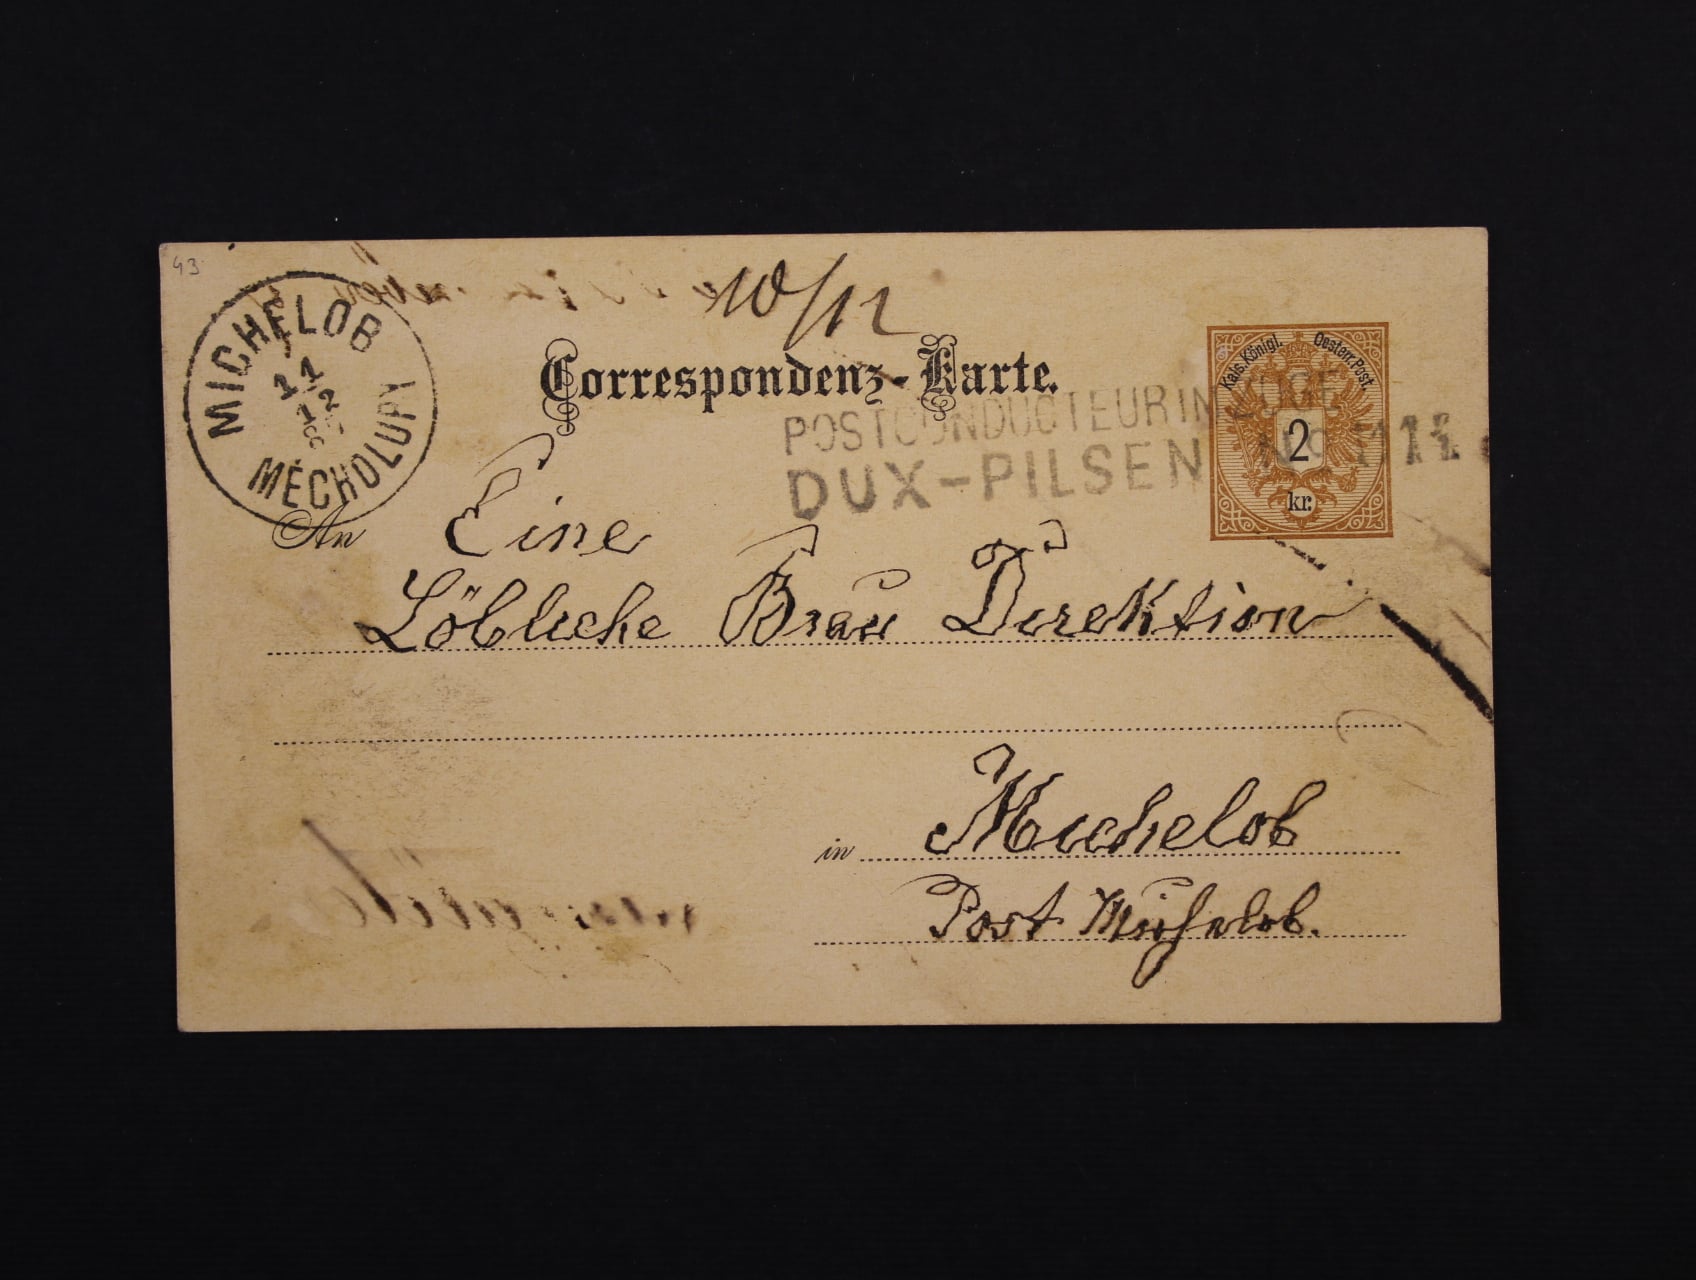 43
10/12
MICHELOB
11
12
MĚCHOLUPY
Correspondenz-Karte.
Kais. Königl. Oesterr. Post.
2
kr.
POSTCONDUCTEUR IM ZUGE
DUX-PILSEN No
An Eine
Löbliche Brau Direktion
in Michelob
Post Michelob.